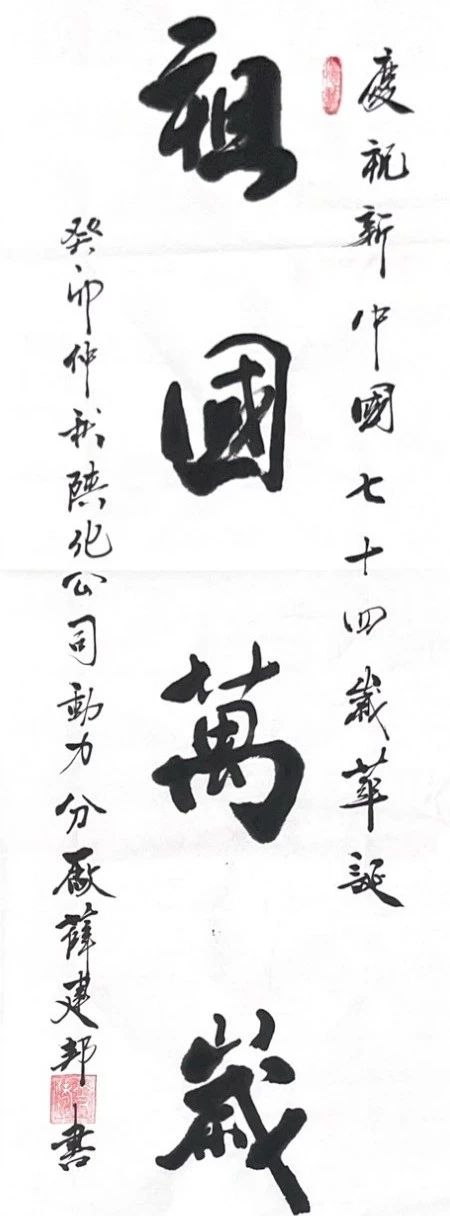 慶祝新中國七十四歲華誕
祖國萬歲
癸卯仲秋陝化公司動力分廠薛建邦書